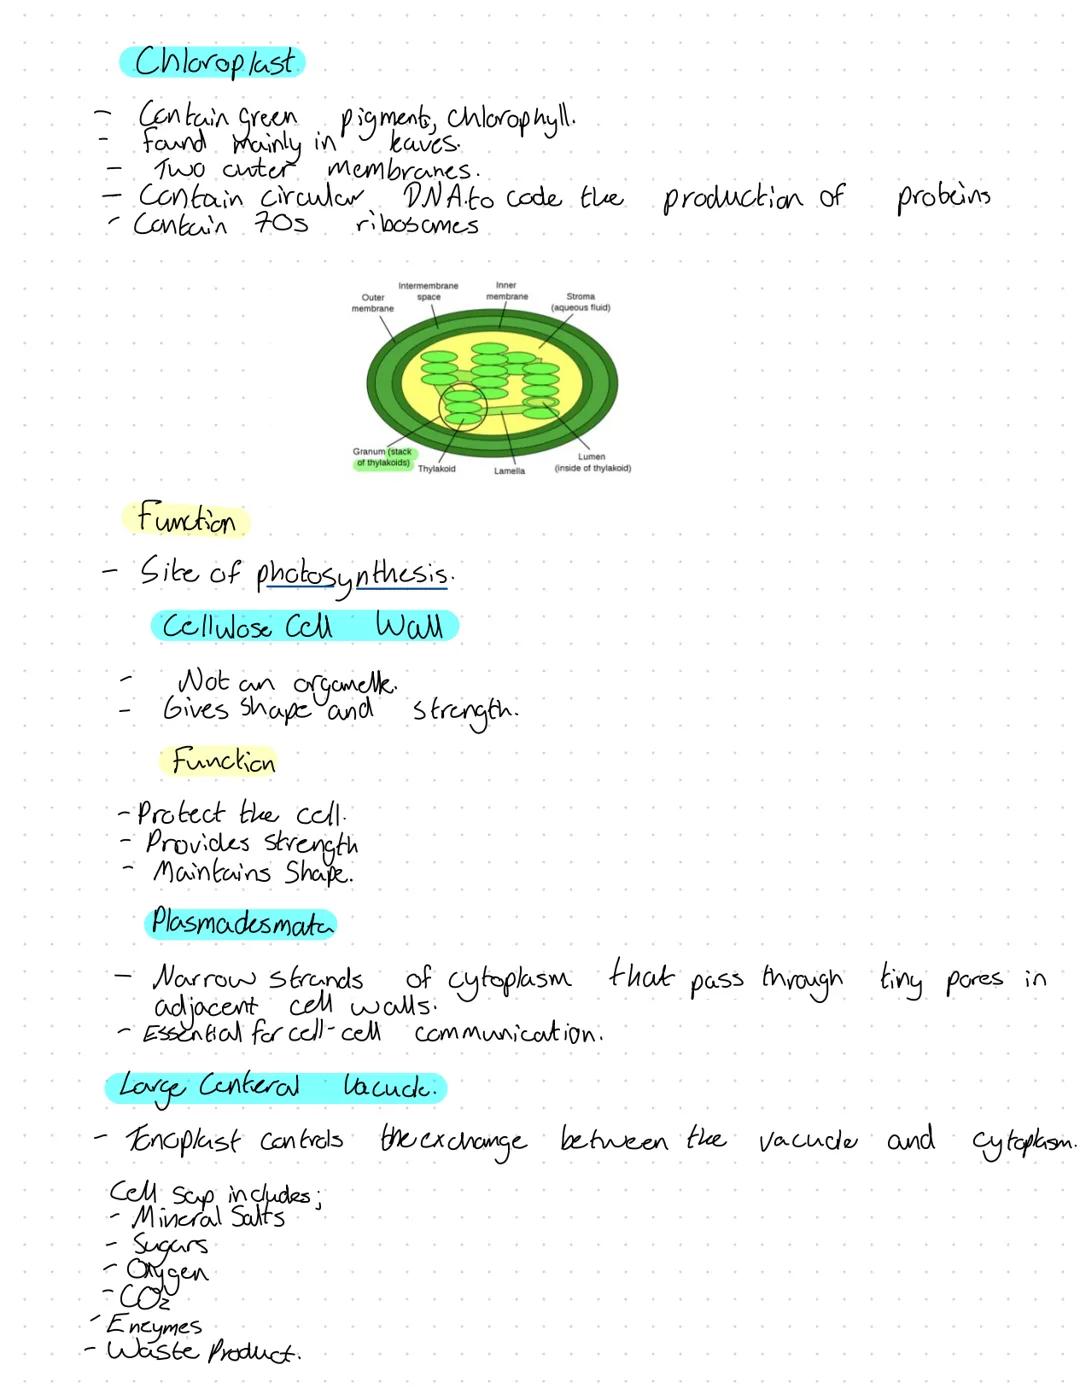 Chloroplast
- Contain green pigment, chlorophyll.
- found mainly in leaves.
- Two outer membranes.
- Contain circular DNA to code the production of proteins
- Contain 70s ribosomes
Intermembrane space
Inner membrane
Outer membrane
Stroma (aqueous fluid)
Granum (stack of thylakoids)
Thylakoid
Lamella
Lumen (inside of thylakoid)
Function
- Site of photosynthesis.
Cellulose Cell Wall
- Not an organelle.
- Gives shape and strength.
Function
- Protect the cell.
- Provides strength
- Maintains Shape.
Plasmadesmata
- Narrow strands of cytoplasm that pass through tiny pores in
adjacent cell walls.
- Essential for cell-cell communication.
Large Centeral Vacuole.
- Tonoplast controls the exchange between the vacuole and cytoplasm.
Cell sap includes;
- Mineral Salts
- Sugars
- Oxygen
- CO2
- Enzymes
- Waste Product.